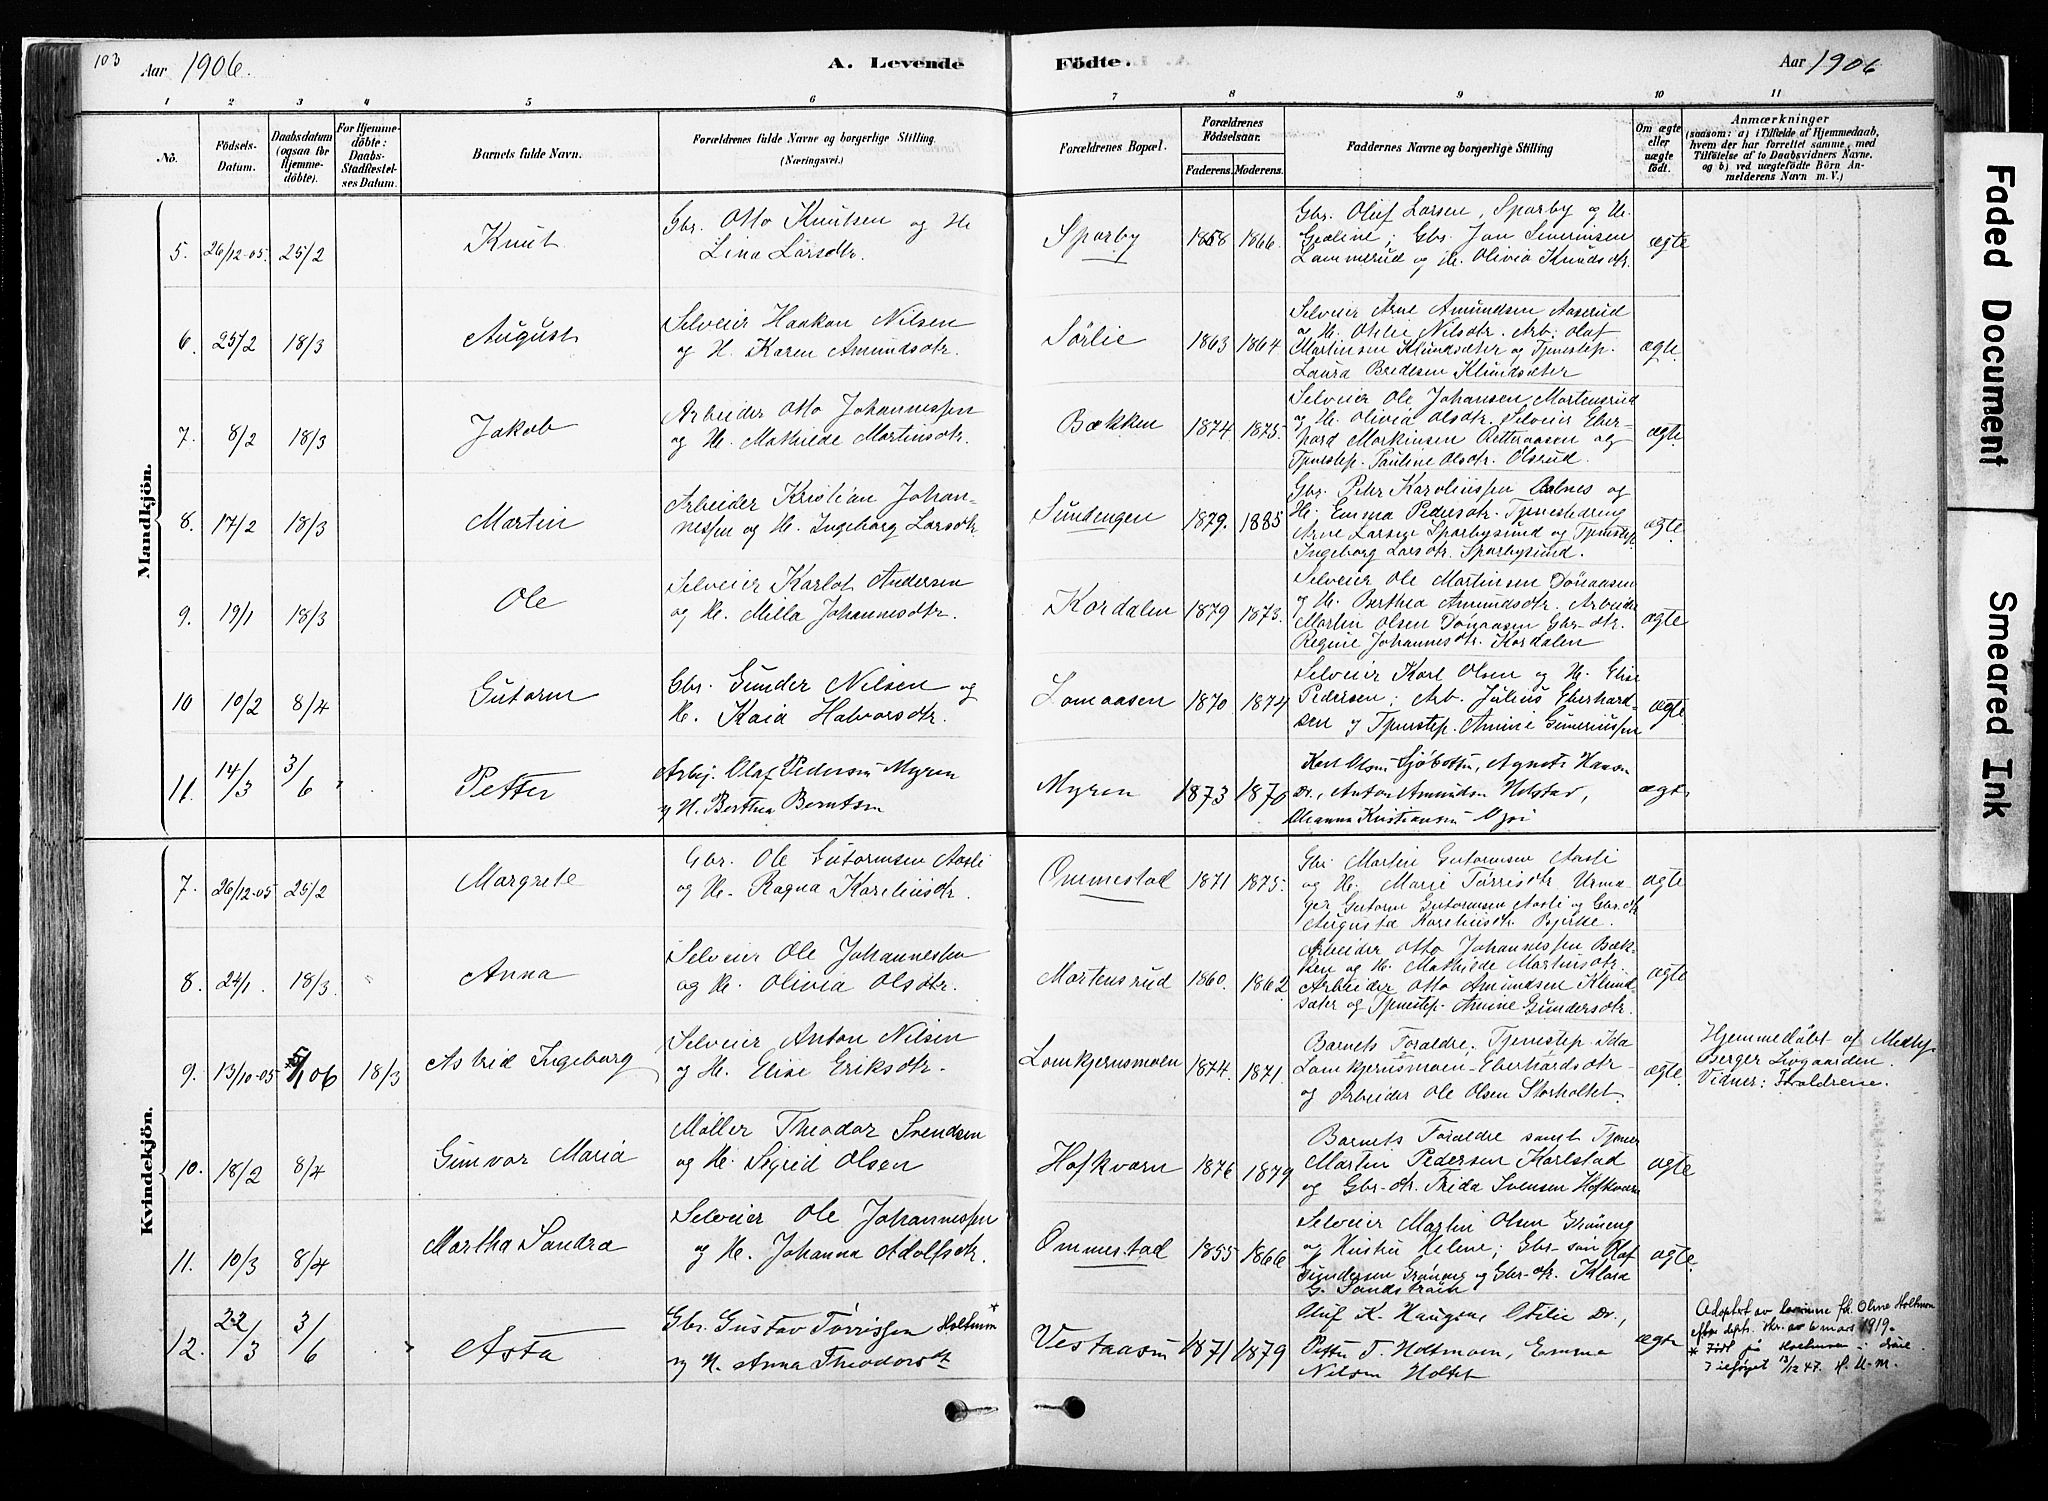 103
Aar 1906.
A. Levende
Födte.
Aar 1906
1 2 3 4 5 6 7 8 9 10 11
No.
Födsels-
Datum.
Daabsdatum
(ogsaa for
Hjemme-
döbte).
For Hjemme-
döbte:
Daabs-
Stadfæstel-
ses Datum.
Barnets fulde Navn.
Forældrenes fulde Navne og borgerlige Stilling
(Næringsvei.)
Forældrenes Bopæl.
Forældrenes
Födselsaar.
Faderens. Moderens.
Faddernes Navne og borgerlige Stilling
Om ægte
eller
uægte
födt.
Anmærkninger
(saasom: a) i Tilfælde af Hjemmedaab,
hvem der har forrettet samme, med
Tilföielse af to Daabsvidners Navne.
og b) ved uægtefödte Börn An-
melderens Navn m. V.)
Mandkjön.
5. 26/12-05. 25/2
Knut
Gbr. Otto Knutsen og H.
Lina Larsdtr.
Sparby
1858 1866.
Gbr. Oluf Larsen, Sparby og H.
Gbr. Jan Severinsen
Lammerud og H. Olivia Knudsdtr.
ægte
6. 25/2 18/3
August
Selveier Haakon Nilsen
og H. Karen Amundsdtr.
Sørlie
1863 1864
Selveier Arne Amundsen Aaserud
og H. Nilsdtr. Arb. Olaf
Martinsen Klundsæter og Tjenestep.
Laura Bredesen Klundsæter
ægte
7. 8/2 18/3
Jakob
Arbeider Otto Johannessen
og H. Mathilde Martinsdtr.
Bækken
1874 1875.
Selveier Ole Johansen Martensrud
og H. Olivia Olsdtr. Selveier Eber-
hard Martinsen og
Tjenestep. Pauline Olsdtr. Olsrud.
ægte
8. 17/2 18/3
Martin
Arbeider Kristian Johan-
nessen og H. Ingeborg Larsdtr.
Sundengen
1879. 1885
Gbr. Peter Karoliussen Aalnes og
H. Emma Pedersdtr. Tjenestedreng
Arne Larsen Sparbysund og Tjenestep.
Ingeborg Larsdtr. Sparbysund.
ægte
9. 19/1 18/3
Ole
Selveier Karlot Andersen
og H. Milla Johannesdtr.
Kordalen
1879 1873.
Selveier Ole Martinsen Dønaasen
og H. Berthea Amundsdtr. Arbeider
Martin Olsen Dønaasen Gbr-dtr.
Regine Johannesdtr. Kordalen
ægte
10 10/2 8/4
Gutorm
Gbr. Gunder Nilsen og
H. Kaia Halvorsdtr.
Lomaasen
1870 1874
Selveier Karl Olsen og H. Elise
Pedersen; Arb. Julius Eberhard-
sen og Tjenestep. Amine Guneriussen
ægte
11. 14/3 3/6
Petter
Arbej. Olaf Pedersen Myren
og H. Berthea Berntsen
Myren
1873 1870
Karl Olsen Agnete Hansen
Dr., Anton Amundsen
Johanna Kristiansen
ægte
Kvindekjön.
7. 26/12-05 25/2
Margrete
Gbr. Ole Gutormsen Aasli
og H. Ragna Kareliusdtr.
Ommestad
1871 1875.
Gbr. Martin Gutormsen Aasli
og H. Marie Tørrisdtr. Urma-
ger Gutorm Gutormsen Aasli og Gbr.dtr.
Augusta Kareliusdtr. Bjerke.
ægte
8. 24/1. 18/3.
Anna
Selveier Ole Johannessen
og H. Olivia Olsdtr.
Martensrud
1860. 1862
Arbeider Otto Johannessen Bæk-
ken og H. Mathilde Martinsdtr.
Arbeider Otto Amundsen Klund-
sæter og Tjenestep. Amine Gundersdtr.
ægte
9. 13/10-05 5/1 06 18/3
Astrid Ingeborg
Selveier Anton Nilsen
og H. Elise Eriksdtr.
Lomkjernsmoen
1874. 1871.
Barnets Foraldre, Tjenestep. Ida
Lomkjernsmoen-Eberhardsdtr
og Arbeider Ole Olsen Storholtet.
ægte
Hjemmedøbt af
Berger
Vidner: Foraldrene.
10. 18/2 8/4
Gunvor Maria
Møller Theodor Svendsen
og H. Sigrid Olsen
Hofkværn
1876 1879
Barnets Foraldre samt Tjener
Martin Pedersen Karlstad
og Gbr-dtr. Frida Svensen Hofkværn
ægte
11. 10/3 8/4
Martha Sandra
Selveier Ole Johannessen
og H. Johanna Adolfsdtr.
Ommestad
1855 1866
Selveier Martin Olsen Grøneng
og Hustru Helene; Gbr-søn Olaf
Gundersen Grøneng og Gbr-dtr. Klara
G. Sandstrøm
ægte.
12. 22/3 3/6
Asta
Gbr. Gustav Tørrissen Holtmoen*
og H. Anna Theodorsdtr
Vestaasen
1871 1879
Oluf K. Haugen, Otilie Dr.,
Petter T. Holtmoen, Emma
Nilsen Holtet
ægte
Adoptert av frk. Oline Holtmoen
efter dept. skr. av 6 mars 1919.
* Født på Holtmoen
Tilføyet 12/12 47. H. U-m.
Faded Document
Smeared Ink